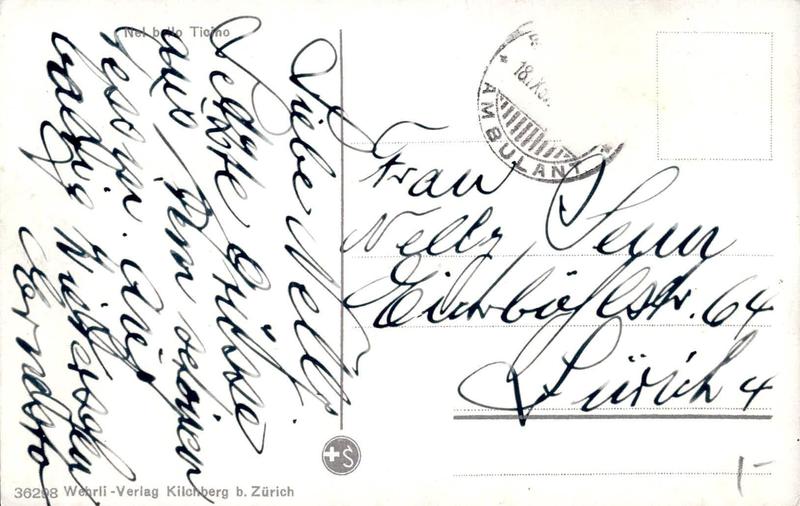 Nel bello Ticino
Liebe Nelly,
Grüsse
aus dem schönen
Tessin. Auf
Wiedersehen
AMBULANT
18.X
Frau
Nelly Senn
Eichbühlstr. 64
Zürich 4
1-
36298 Wehrli-Verlag Kilchberg b. Zürich